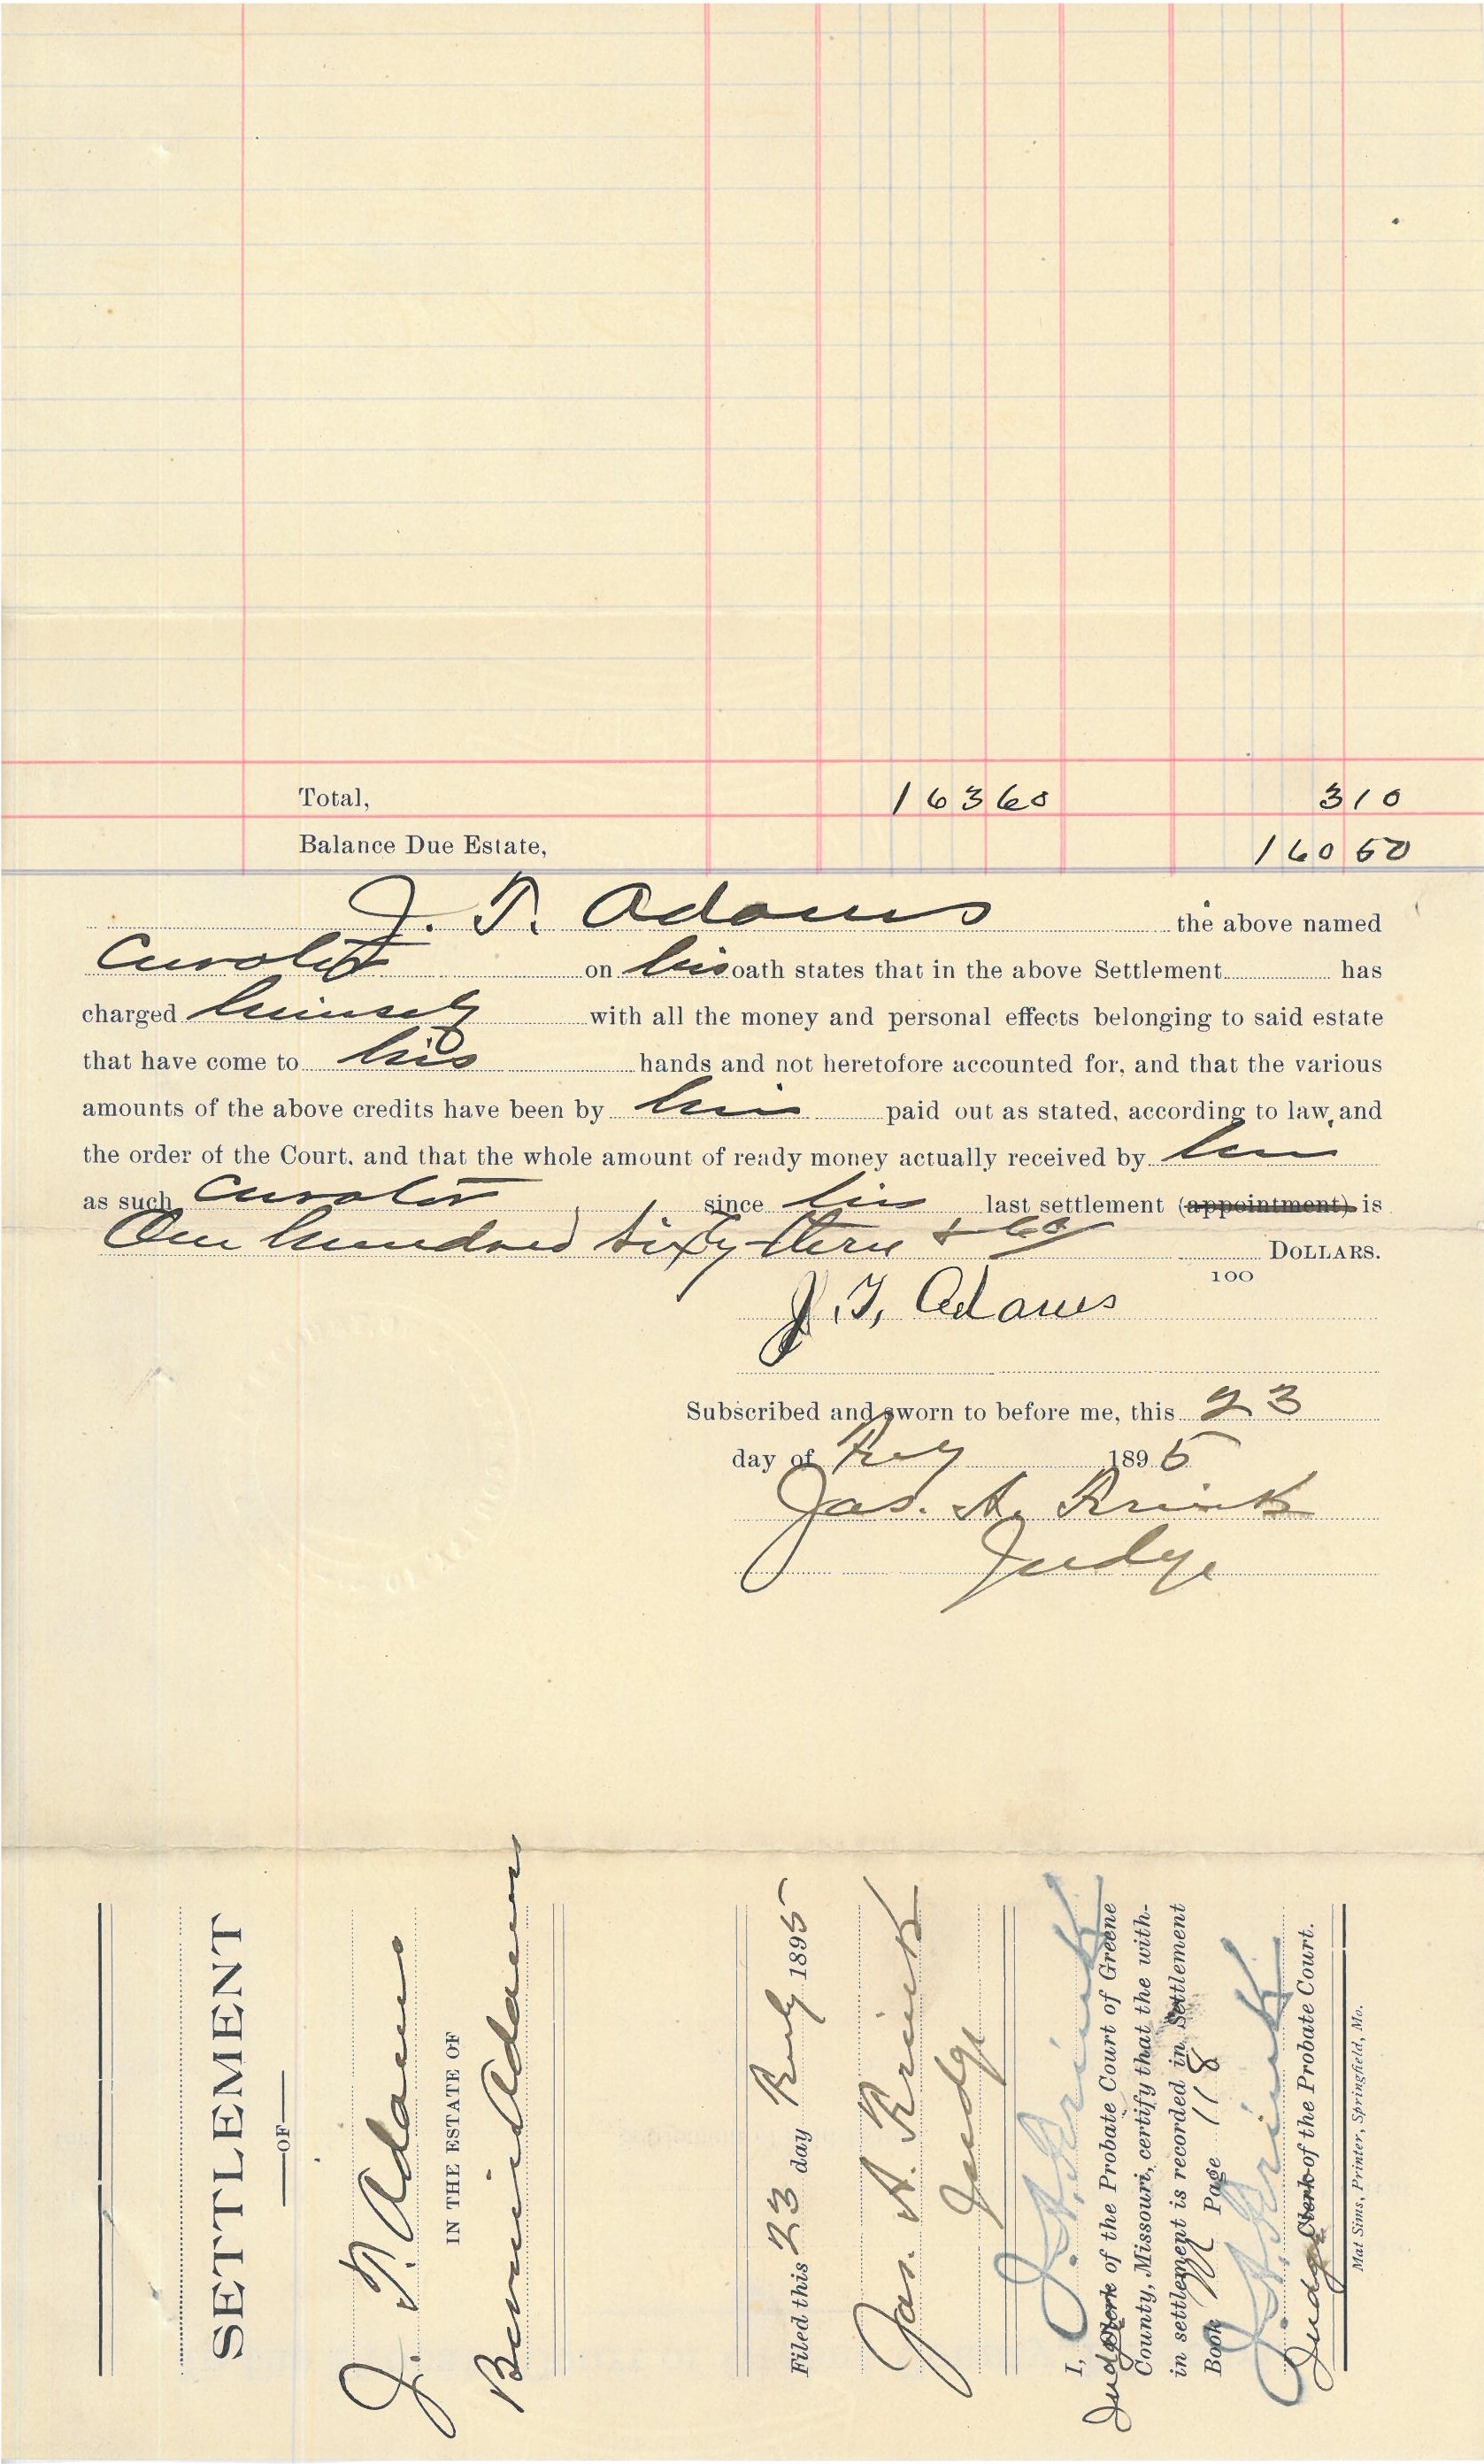 Total, 163 60 3 10
Balance Due Estate, 160 50
J. T. Adams the above named
Curator on his oath states that in the above Settlement has
charged himself with all the money and personal effects belonging to said estate
that have come to his hands and not heretofore accounted for, and that the various
amounts of the above credits have been by him paid out as stated, according to law, and
the order of the Court, and that the whole amount of ready money actually received by him
as such Curator since his last settlement (appointment) is
One hundred sixty three & 60 DOLLARS.
100
J. T. Adams
Subscribed and sworn to before me, this 23
day of 1895
Jas. A.
Judge
SETTLEMENT
OF
J. T. Adams
IN THE ESTATE OF
Adams
Filed this 23 day 1895
Jas. A.
Judge
I, J. A.
Judge Clerk of the Probate Court of Greene
County, Missouri, certify that the with-
in settlement is recorded in Settlement
Book M Page 118
J. A.
Judge Clerk of the Probate Court.
Mat Sims, Printer, Springfield, Mo.